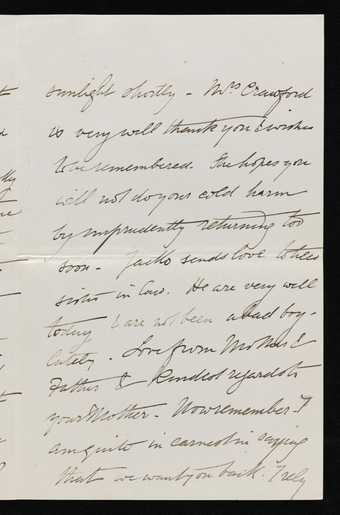 sunlight shortly - Mrs Crawford
is very well thank you & wishes
to be remembered. She hopes you
will not do your cold harm
by imprudently returning too
soon. - Jacko sends love to his
sister in law. He are very well
today & are not been a bad boy.
lately. - Love from Mother &
Father & kindest regards to
your Mother - Now remember I
am quite in earnest in saying
that we want you back. I rely